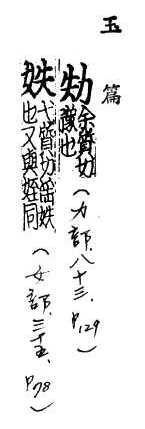 玉篇
劮 余質切
豫也 (力部.八十三, P129)
妷 弋質切 妷
也又與姪同 (女部.三十五, P78)